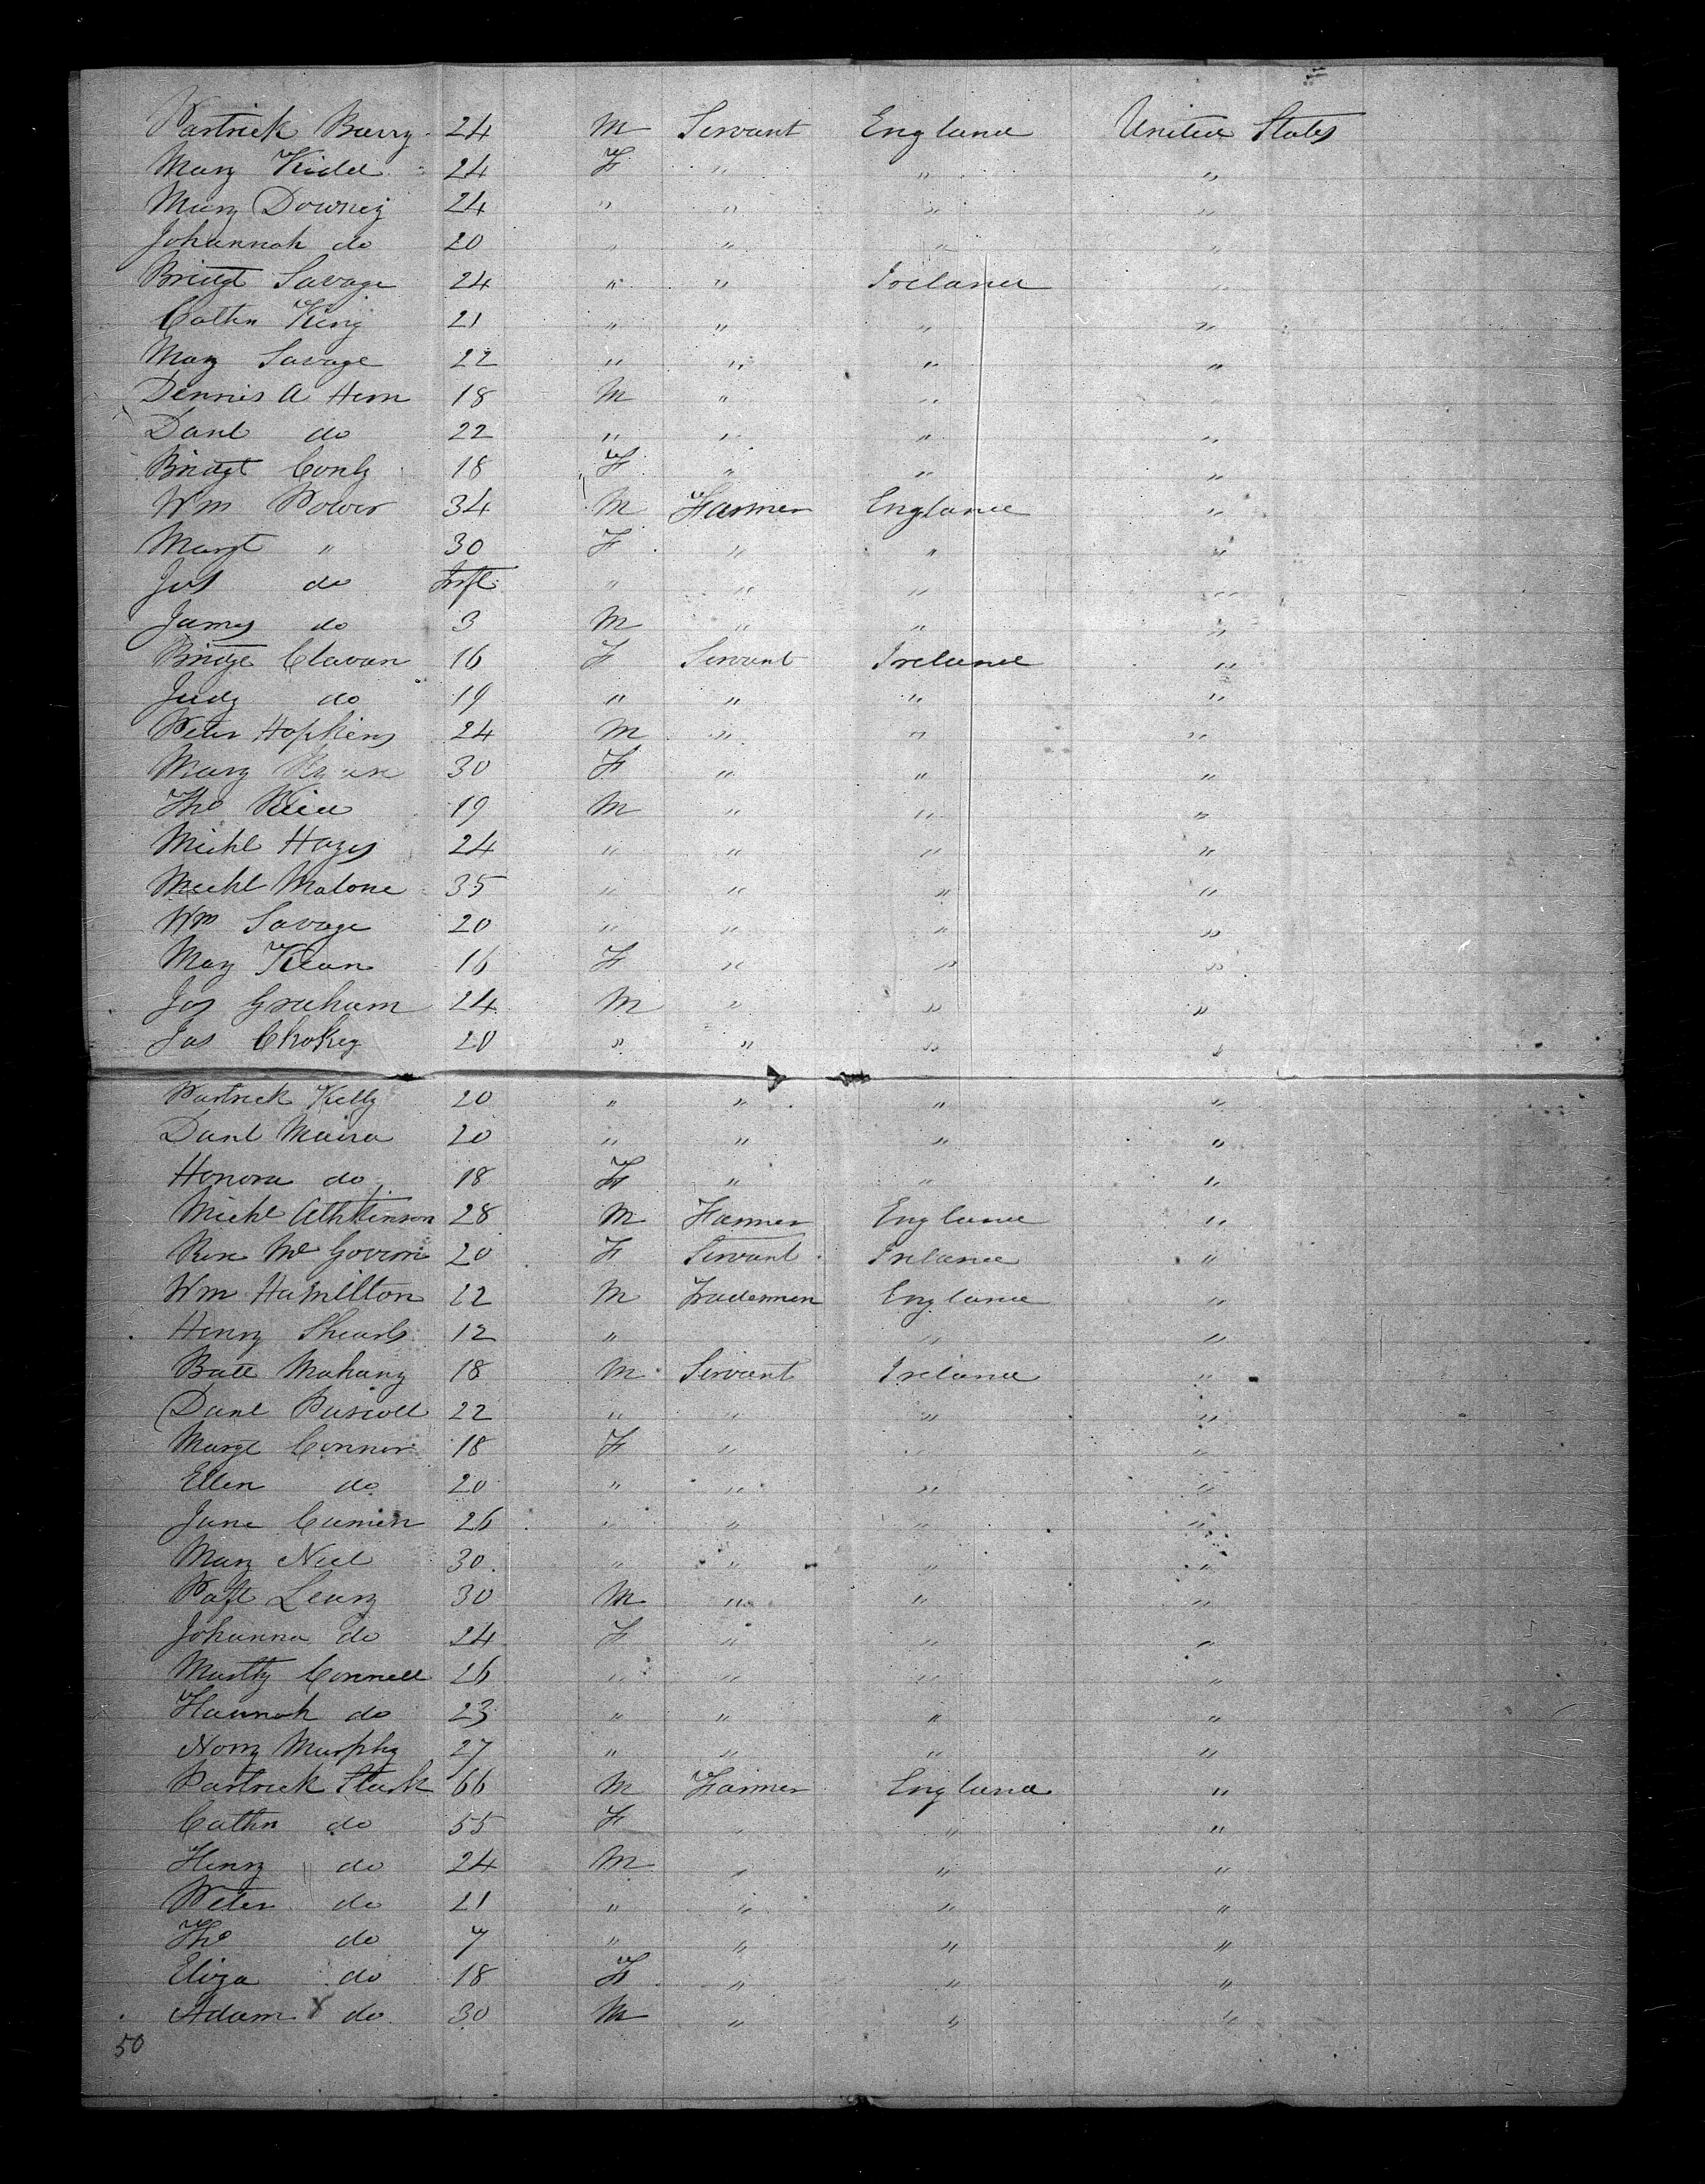 Partrick Barry 24 M Servant England United States
Mary Kidd 24 F " " "
Mary Downey 24 " " " "
Johannah do 20 " " " "
Bridgt Savage 24 " " Ireland "
Cathn King 21 " " " "
Mary Savage 22 " " " "
Dennis A Hern 18 M " " "
Danl do 22 " " " "
Bridgt Conly 18 F " " "
Wm Power 34 M Farmer England "
Margt " 30 F " " "
Jas do Inft " " " "
James do 3 M " " "
Bridge Clavan 16 F Servant Ireland "
Judy do 19 " " " "
Peter Hopkins 24 M " " "
Mary 30 F " " "
Tho 19 M " " "
Michl Hays 24 " " " "
Michl Malone 35 " " " "
Wm Savage 20 " " " "
Mary Kean 16 F " " "
Jos Graham 24 M " " "
Jas Chokey 20 " " " "
Partrick Kelly 20 " " " "
Danl Maira 20 " " " "
Honora do 18 F " " "
Michl Athkinson 28 M Farmer England "
Rose Mc Govern 20 F Servant Ireland "
Wm Hamillton 22 M Trademen England "
Henry 12 " " "
Batt Mahany 18 M Servant Ireland "
Danl 22 " " " "
Margt Connor 18 F " " "
Ellen do 20 " " " "
Jane 26 " " " "
Mary Neil 30 " " " "
Patk Leary 30 M " " "
Johanna do 24 F " " "
Matty Connell 26 " " " "
Hannah do 23 " " " "
Nory Murphy 27 " " " "
Partrick 66 M Farmer England "
Cathn do 55 F " " "
Henry do 24 M " " "
Peter do 21 " " " "
Tho do 7 " " " "
Eliza do 18 F " " "
Adam X do 30 M " " "
50